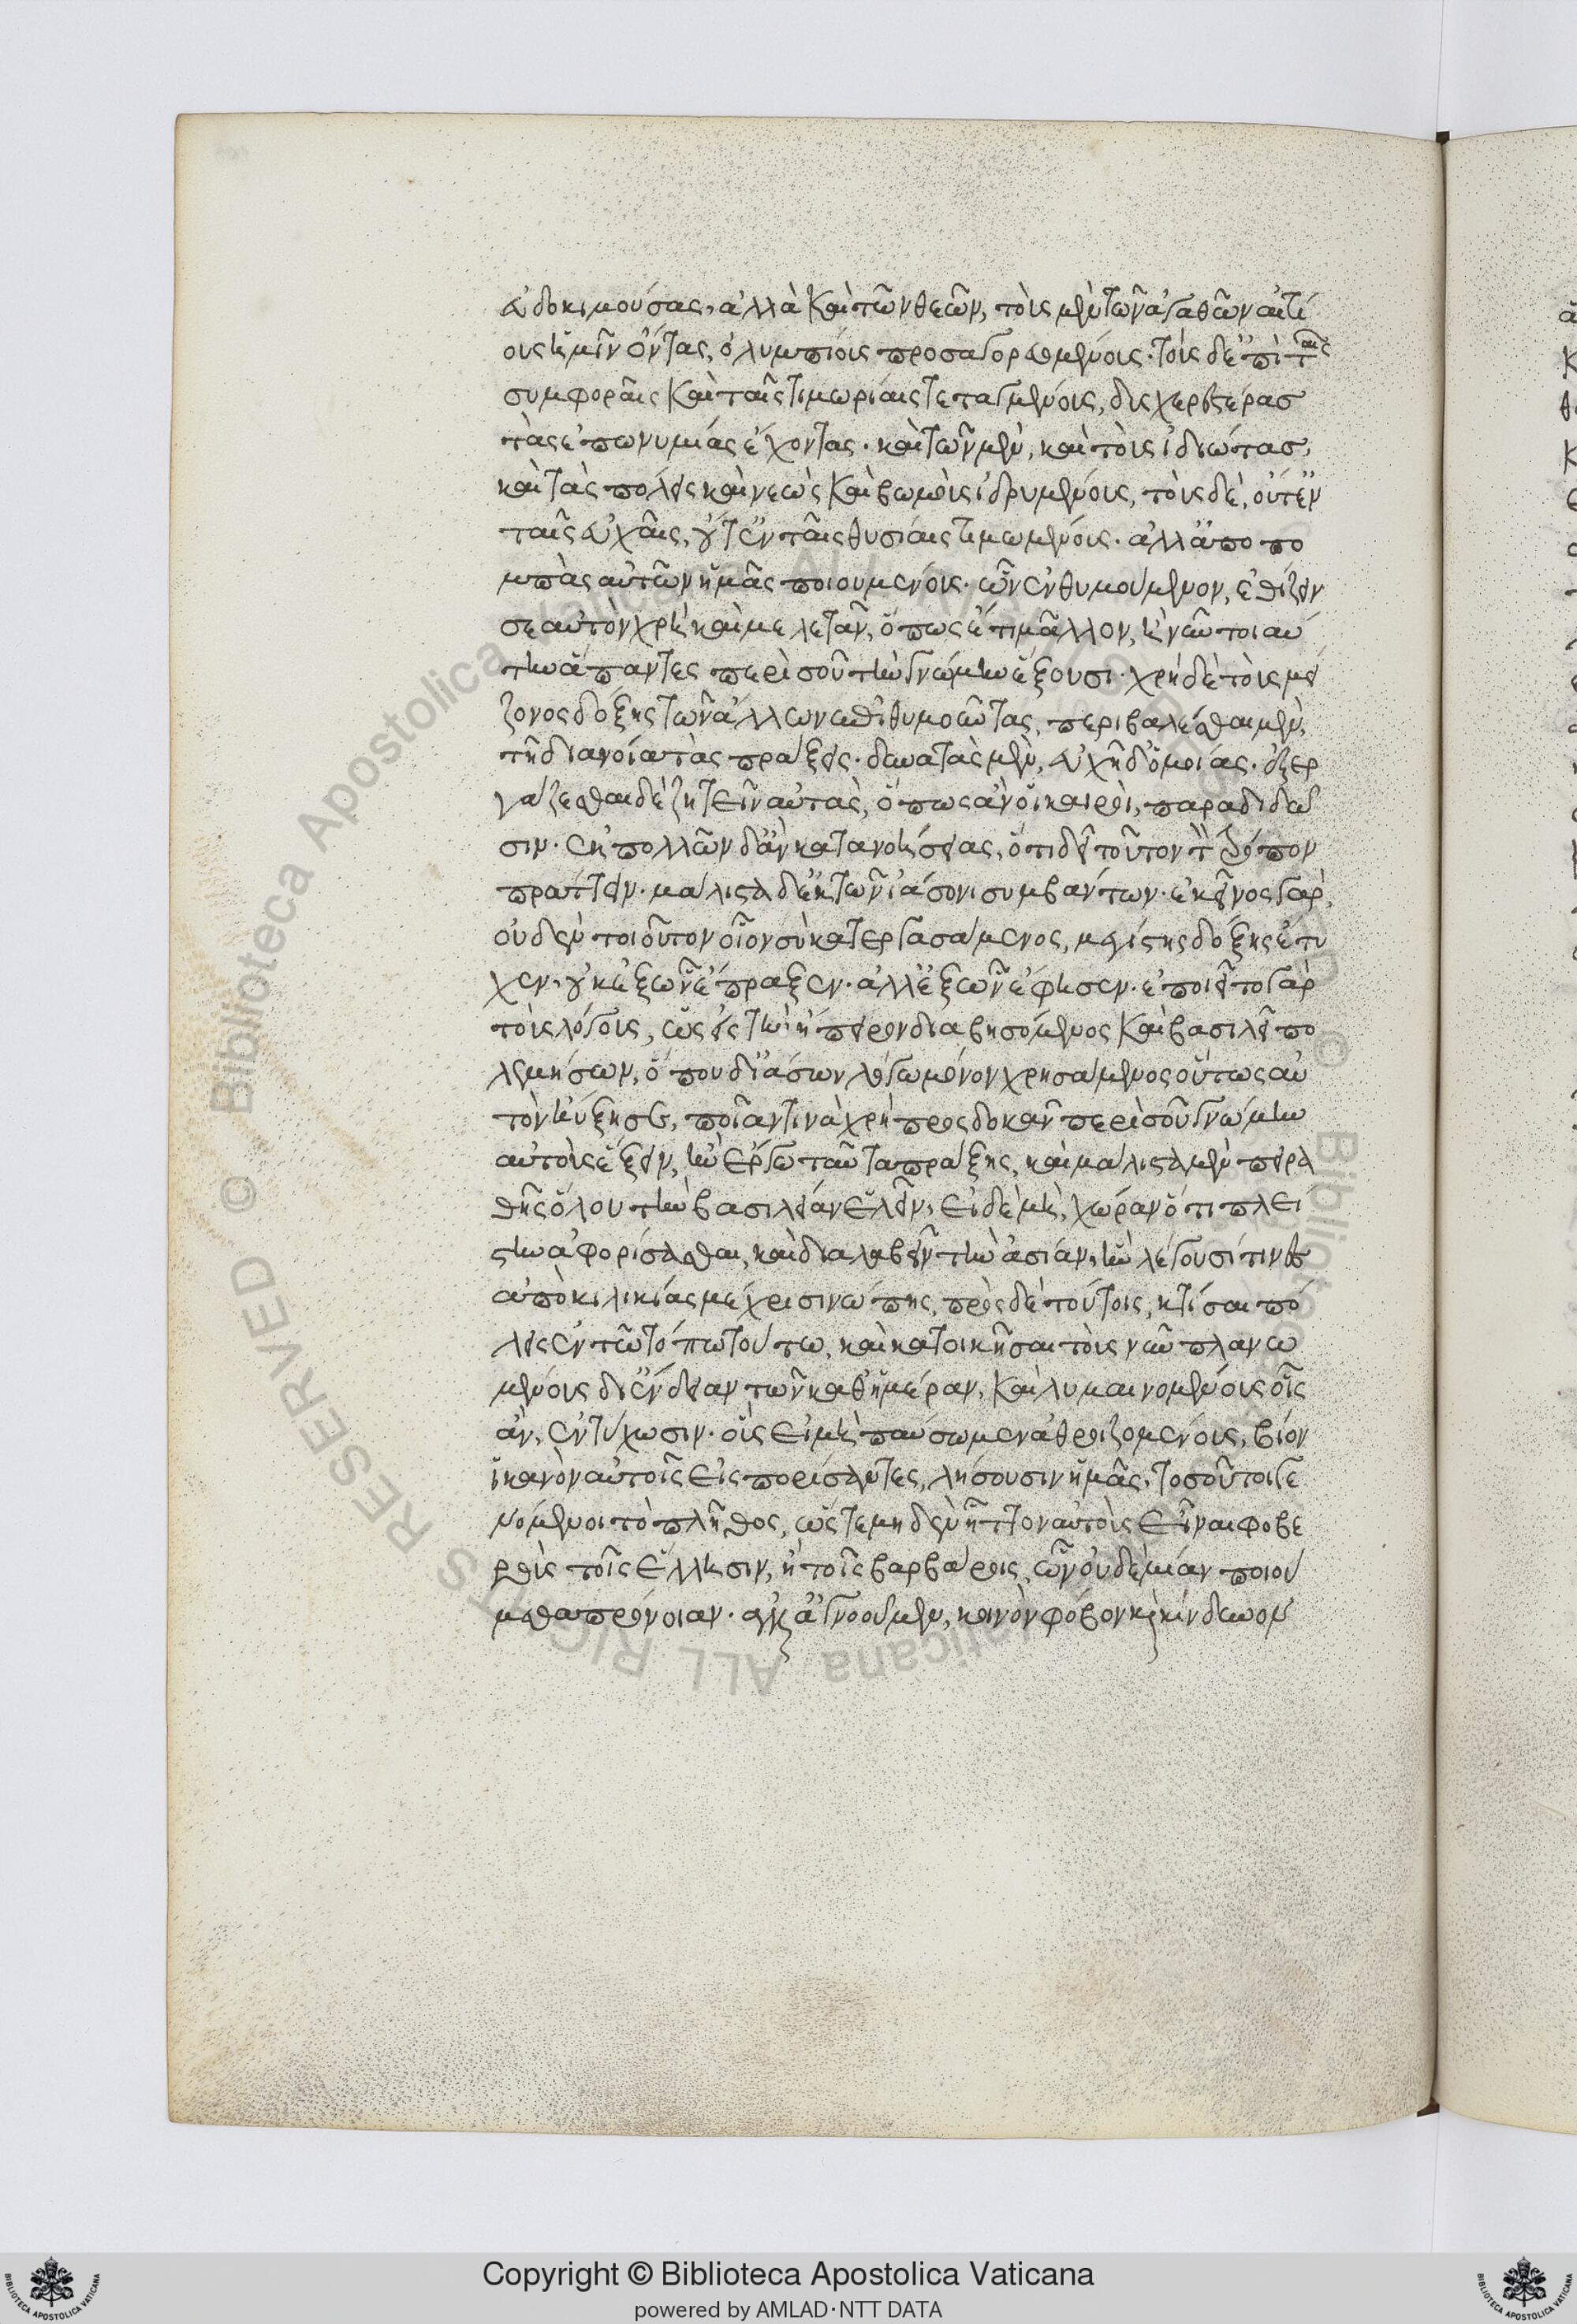 εὐδοκιμούσας, ἀλλὰ καὶ τῶν θεῶν, τοὺς μὲν τῶν ἀγαθῶν αἰτί
ους ἡμῖν ὄντας, ὀλυμπίους προσαγορευομένους. τοὺς δ' ἐπὶ ταῖς
συμφοραῖς καὶ ταῖς τιμωρίαις τεταγμένους, δυσχερεστέρασ
τὰς ἐπωνυμίας ἔχοντας. καὶ τῶν μὲν, καὶ τοὺς ἰδιώτασ,
καὶ τὰς πόλεις καὶ νεὼς καὶ βωμοὺς ἱδρυμένους, τοὺς δὲ, οὔτ' ἐν
ταῖς εὐχαῖς, οὔτ' ἐν ταῖς θυσίαις τιμωμένους. ἀλλ' ἀποπο
μπὰς αὐτῶν ἡμᾶς ποιουμένους. ὧν ἐνθυμούμενον, ἐθίζειν
σεαυτὸν χρὴ καὶ μελετᾶν, ὅπως ἔτι μᾶλλον, ἢ νῦν τοιαύ
την ἅπαντες περὶ σοῦ τὴν γνώμην ἕξουσι. χρὴ δὲ τοὺς μεί
ζονος δόξης τῶν ἄλλων ἐπιθυμοῦντας, περιβαλέσθαι μὲν,
τῆ διανοία τὰς πράξεις. δυνατὰς μὲν, εὐχῆ δ' ὁμοίας. ἐξερ
γάζεσθαι δὲ ζητεῖν αὐτὰς, ὅπως ἂν οἱ καιροὶ, παραδιδῶ
σιν. ἐκ πολλῶν δ' ἂν κατανοήσειας, ὅτι δεῖ τοῦτον τὸν τρόπον
πράττειν. μάλιστα δ' ἐκ τῶν ἰάσονι συμβάντων. ἐκεῖνος γὰρ,
οὐδὲν τοιοῦτον οἷον σὺ κατεργασάμενος, μεγίστης δόξης ἔτυ
χεν, οὐκ ἐξ ὧν ἔπραξεν. ἀλλ' ἐξ ὧν ἔφησεν. ἐποιεῖτο γὰρ
τοὺς λόγους, ὡς εἰς τὴν ἤπειρον διαβησόμενος καὶ βασιλεῖ πο
λεμήσων, ὅπου δ' ἰάσων λόγω μόνον χρησάμενος οὕτως αὑ
τὸν ηὔξησε, ποίαν τινὰ χρὴ προσδοκᾶν περὶ σοῦ γνώμην
αὐτοὺς ἕξειν, ἢν ἔργω ταῦτα πράξης, καὶ μάλιστα μὲν πειρα
θῆς ὅλου τὴν βασιλείαν ἑλεῖν, εἰ δὲ μὴ, χώραν ὅτι πλεί
στην ἀφορίσασθαι, καὶ διαλαβεῖν τὴν ἀσίαν, ἣν λέγουσί τινες
ἀπὸ κιλικίας μέχρι σινώπης, πρὸς δὲ τούτοις, κτίσαι πό
λεις ἐν τῶ τόπω τούτω, καὶ κατοικῆσαι τοὺς νῦν πλανω
μένους δι' ἔνδειαν τῶν καθ' ἡμέραν, καὶ λυμαινομένους οἷς
ἂν, ἐντύχωσιν. οὓς εἰ μὴ παύσωμεν ἀθροιζομένους, βίον
ἱκανὸν αὐτοῖς εἰσπορίσαντες, λήσουσιν ἡμᾶς, τοσοῦτοι γε
νόμενοι τὸ πλῆθος, ὥστε μηδὲν ἧττον αὐτοὺς εἶναι φοβε
ροὺς τοῖς ἕλλησιν, ἢ τοῖς βαρβάροις, ὧν οὐδεμίαν ποιού
μεθα πρόνοιαν. ἀλλ' ἀγνοοῦμεν, κοινὸν φόβον καὶ κίνδυνον